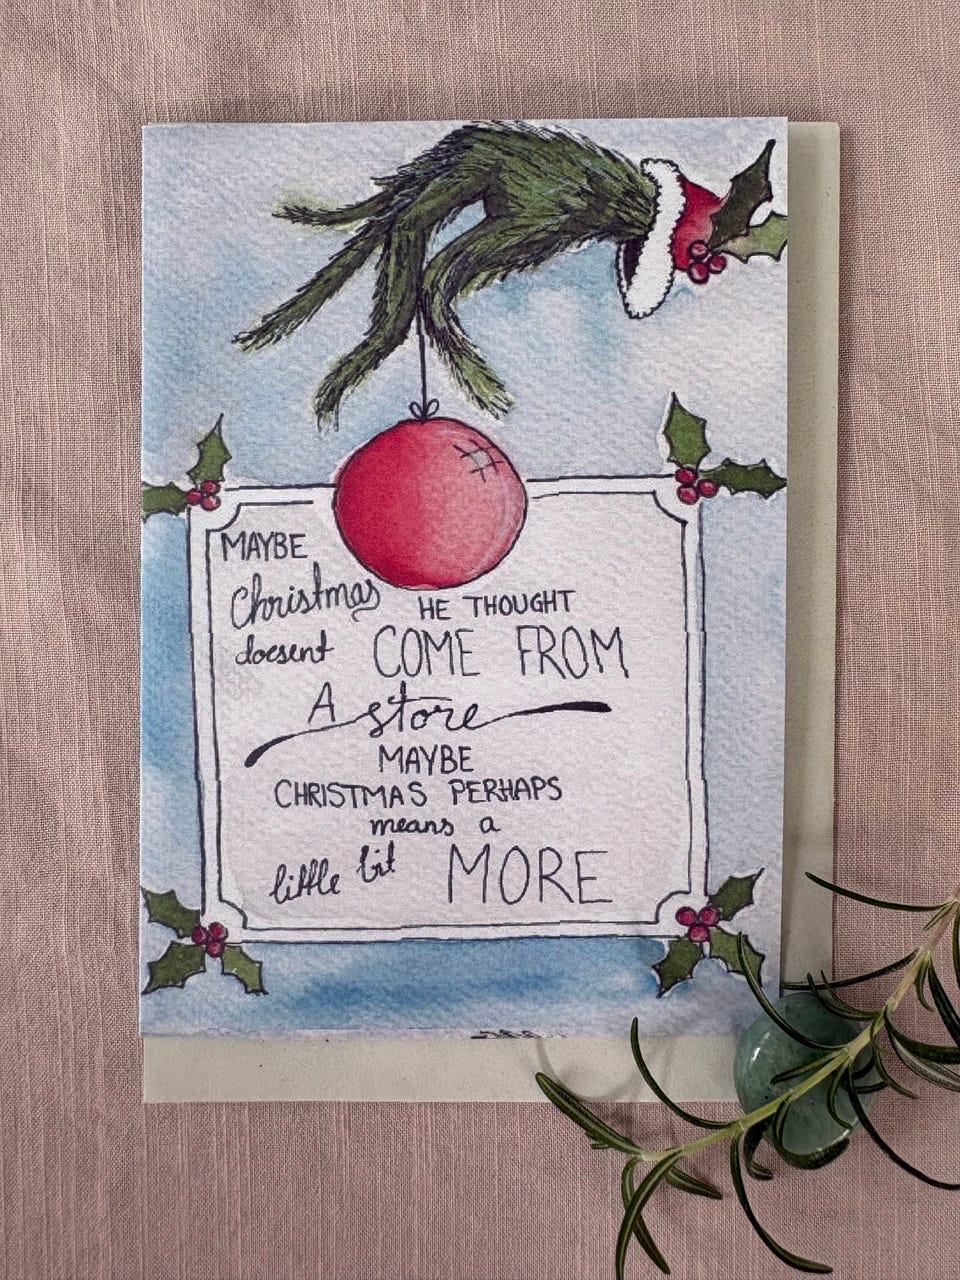 MAYBE
Christmas HE THOUGHT
doesent COME FROM
A store
MAYBE
CHRISTMAS PERHAPS
means a
little bit MORE